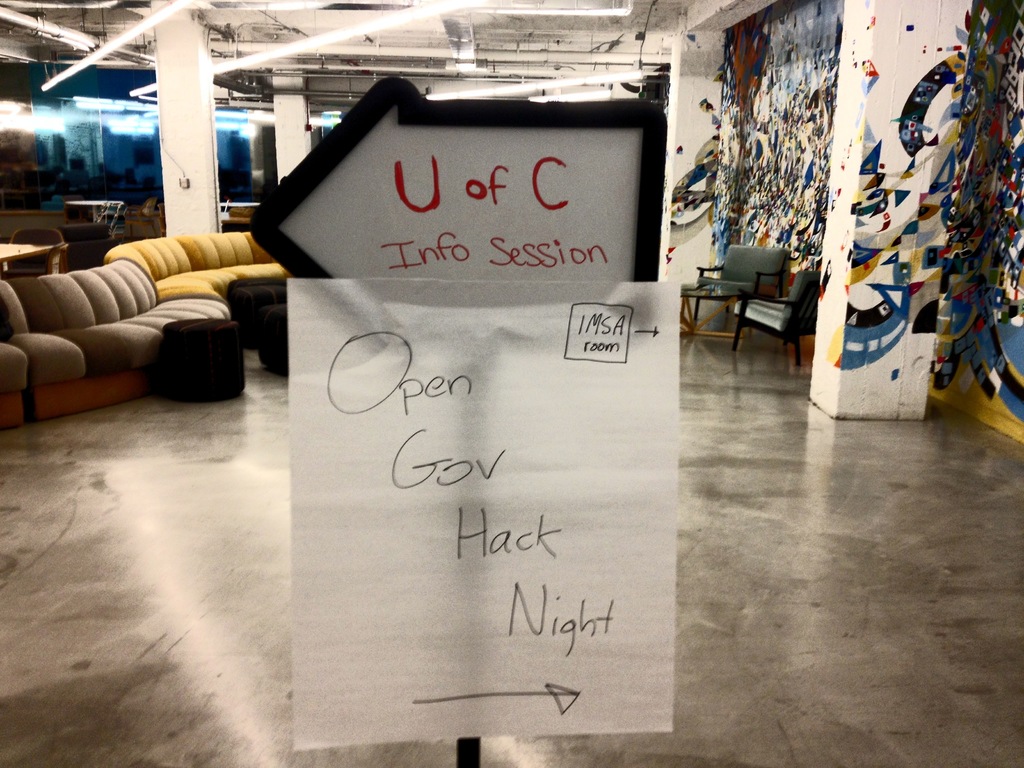 U of C
Info Session
IMSA
room
Open
Gov
Hack
Night